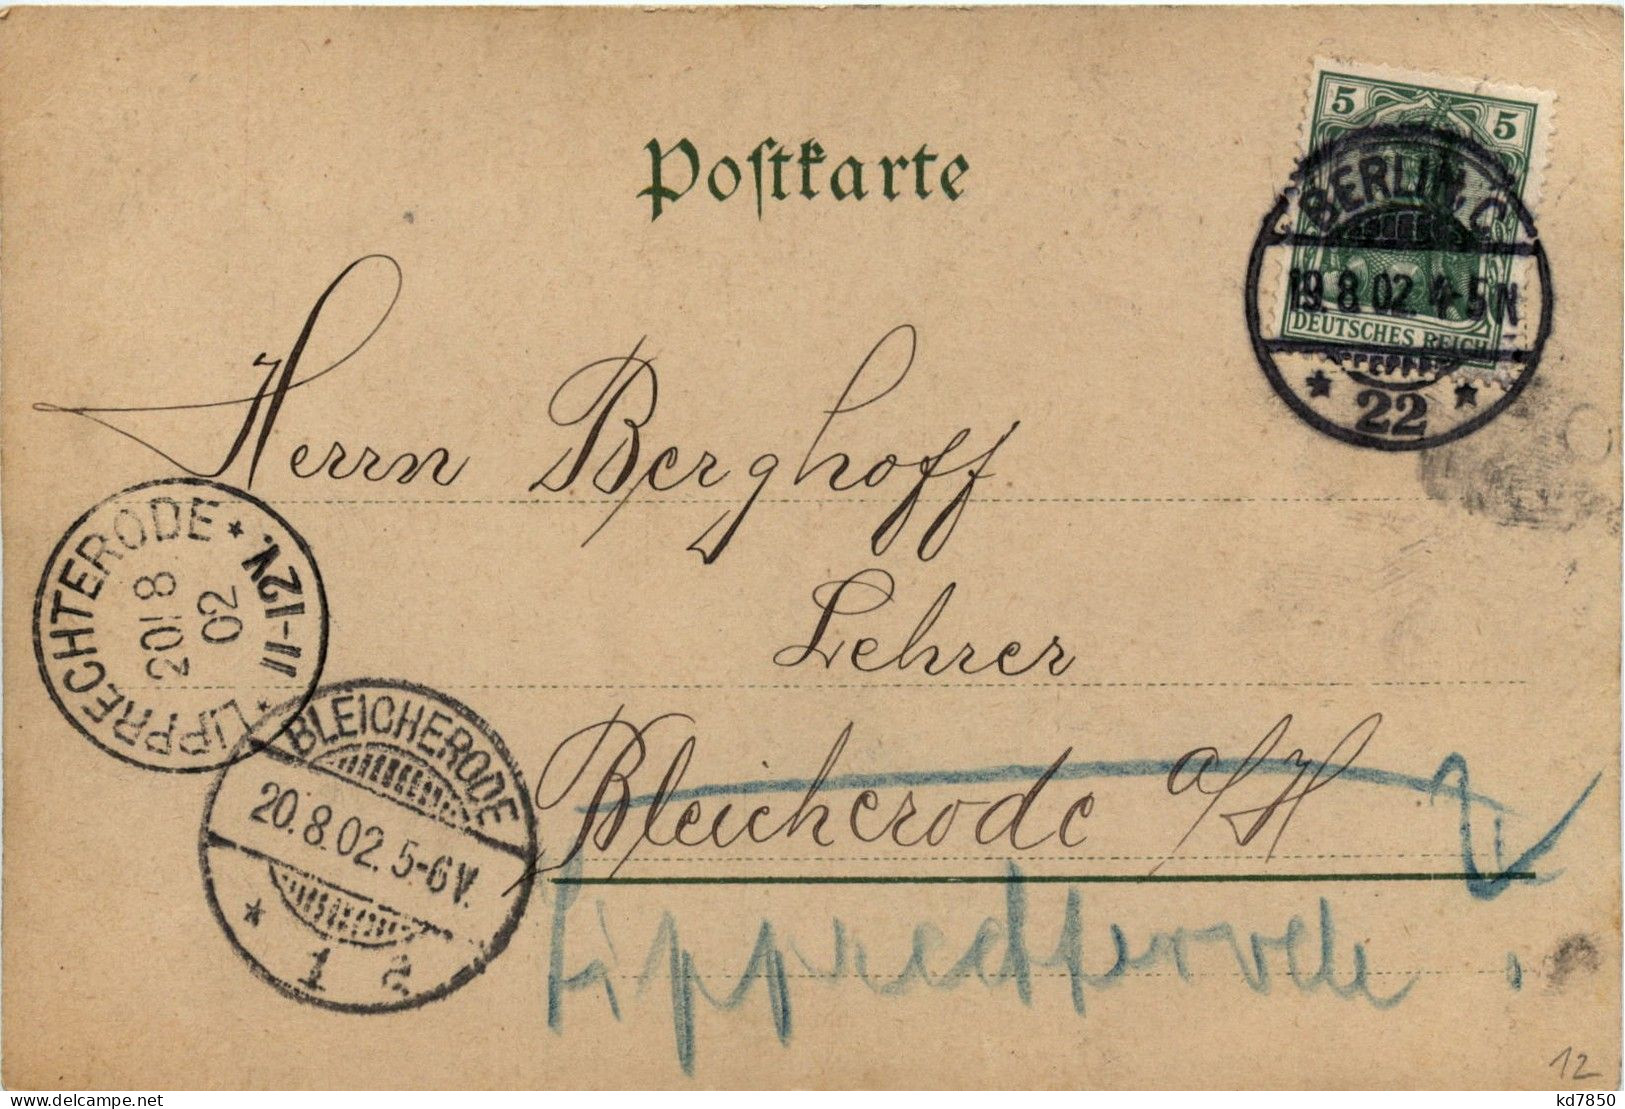 Postkarte
5 5
DEUTSCHES REICH
BERLIN, C.
19.8.02. 4-5N
* 22 *
Herrn Berghoff
Lehrer
Bleicherode a/H
Lipprechterode
LIPPRECHTERODE * 11-12N. *
20 8
02
BLEICHERODE
20.8.02. 5-6V.
* 1 a
12
kd7850